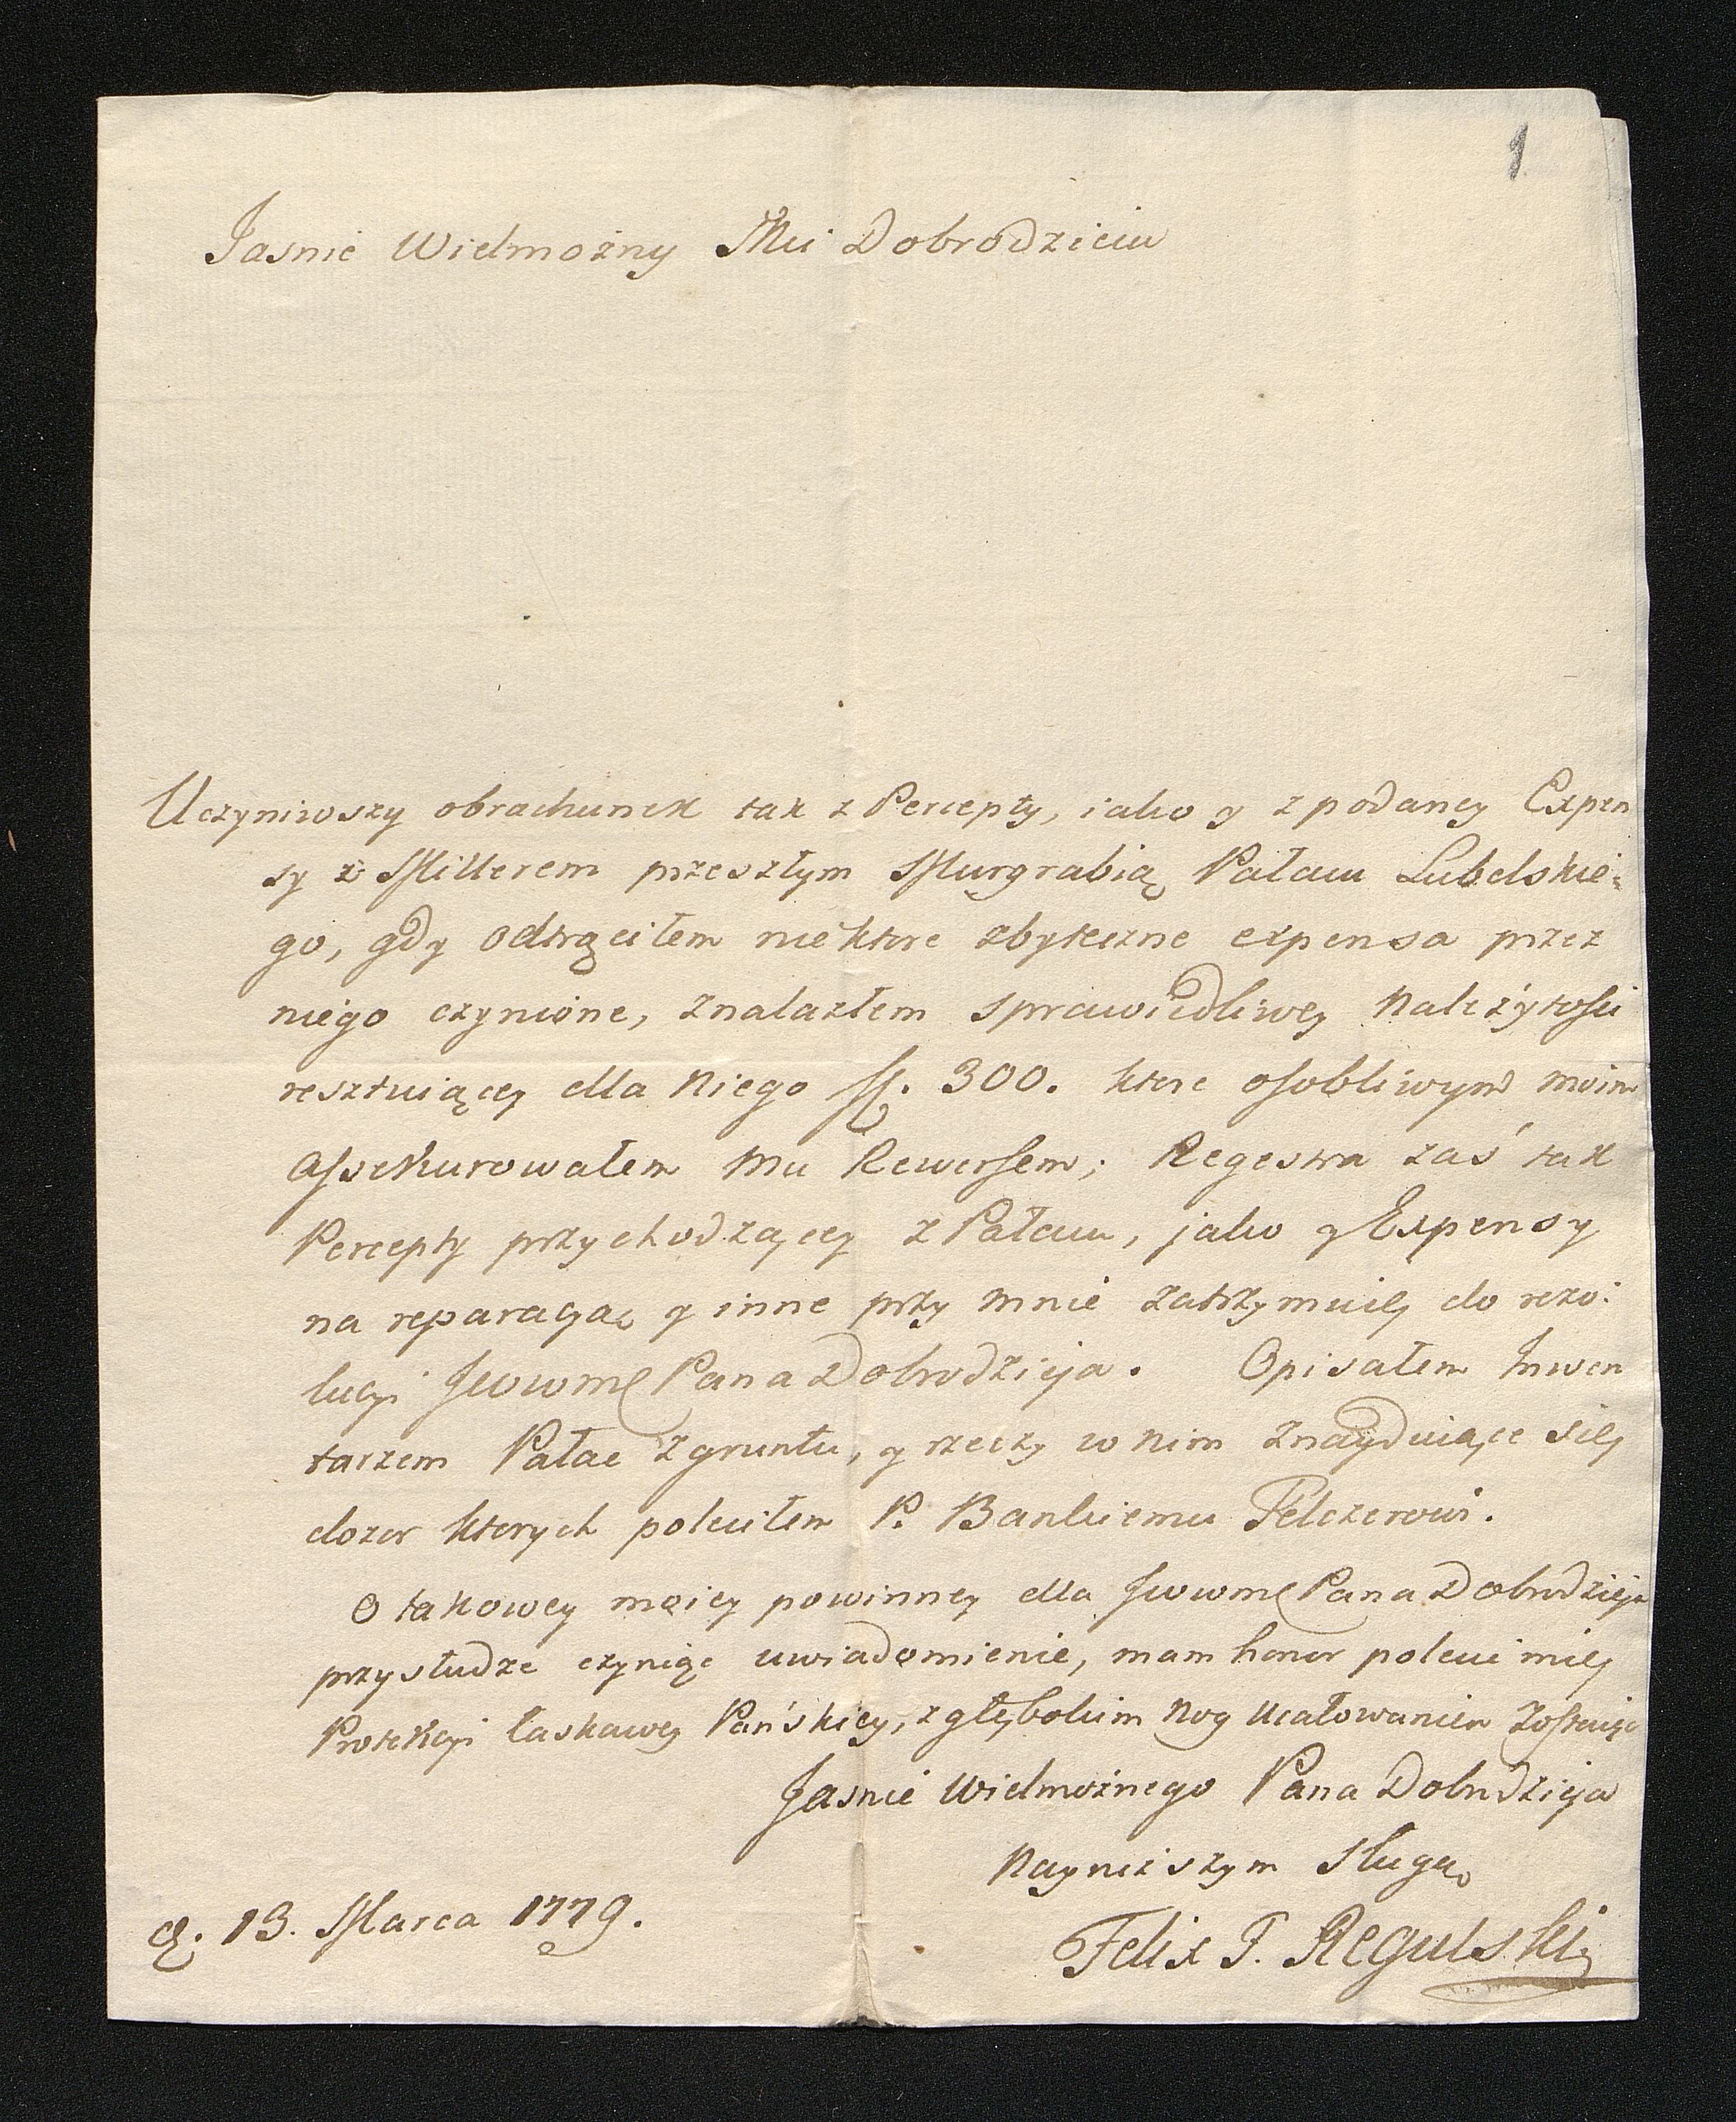 1
Jasnie Wielmożny Mci Dobrodzieiu
Uczyniwszy obrachunek tak z Percepty, iako y z podaney Expen
sy z Millerem przeszłym Murgrabią Pałacu Lubelskie-
go, gdy odtrąciłem niektore zbyteczne expensa przez
niego czynione, znalazłem sprawiedliwey należytości
resztuiącey dla niego ff. 300. ktore osobliwym moim
assekurowałem mu Rewersem; Regestra zaś tak
Percepty przychodzącey z Pałacu, jako y Expensy
na reparacyą y inne przy mnie zatrzymuię do rezo-
lucyi JWWMC Pana Dobrodzieja. Opisałem Inwen
tarzem Pałac z gruntu, y rzeczy w nim znayduiące się
dozor ktorych poleciłem P. Bankiemu Felczerowi.
O takowey moiey powinney dla JWWMC Pana Dobrodzieja
przysłudze czyniąc uwiadomienie, mam honor polecić mię
Protekcyi łaskawey Pańskiey, z głębokim nog ucałowaniem zostaiąc
Jasnie Wielmożnego Pana Dobrodzieja
Nayniższym sługą
d. 13. Marca 1779.
Felix F. Regulski